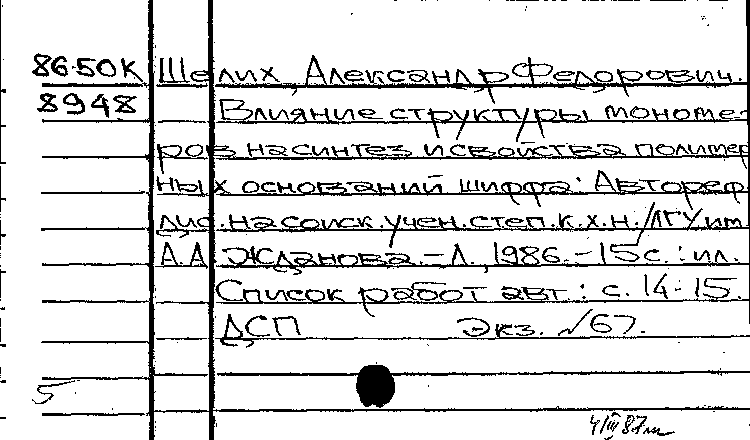 86-50К Шелих, Александр Федорович.
8948 Влияние структуры мономе-
ров на синтез и свойства полимер
ных оснований шиффа: Автореф
дис. на соиск. учен. степ. к.х.н. / ЛГУ им
А.А Жданова. - Л., 1986. - 15 с.: ил.
Список работ авт.: с. 14-15.
ДСП Экз. №67.
5